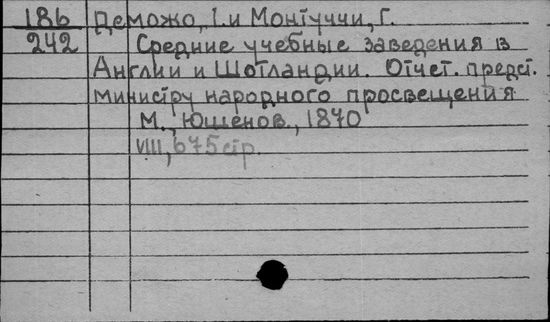 186 Деможо, І. и Монтуччи, Г.
242 Средние учебные заведения в
Англии и Шотландии. Отчет. предст.
министру народного просвещения
М., Юшенов., 1870
VIII, 675 стр.